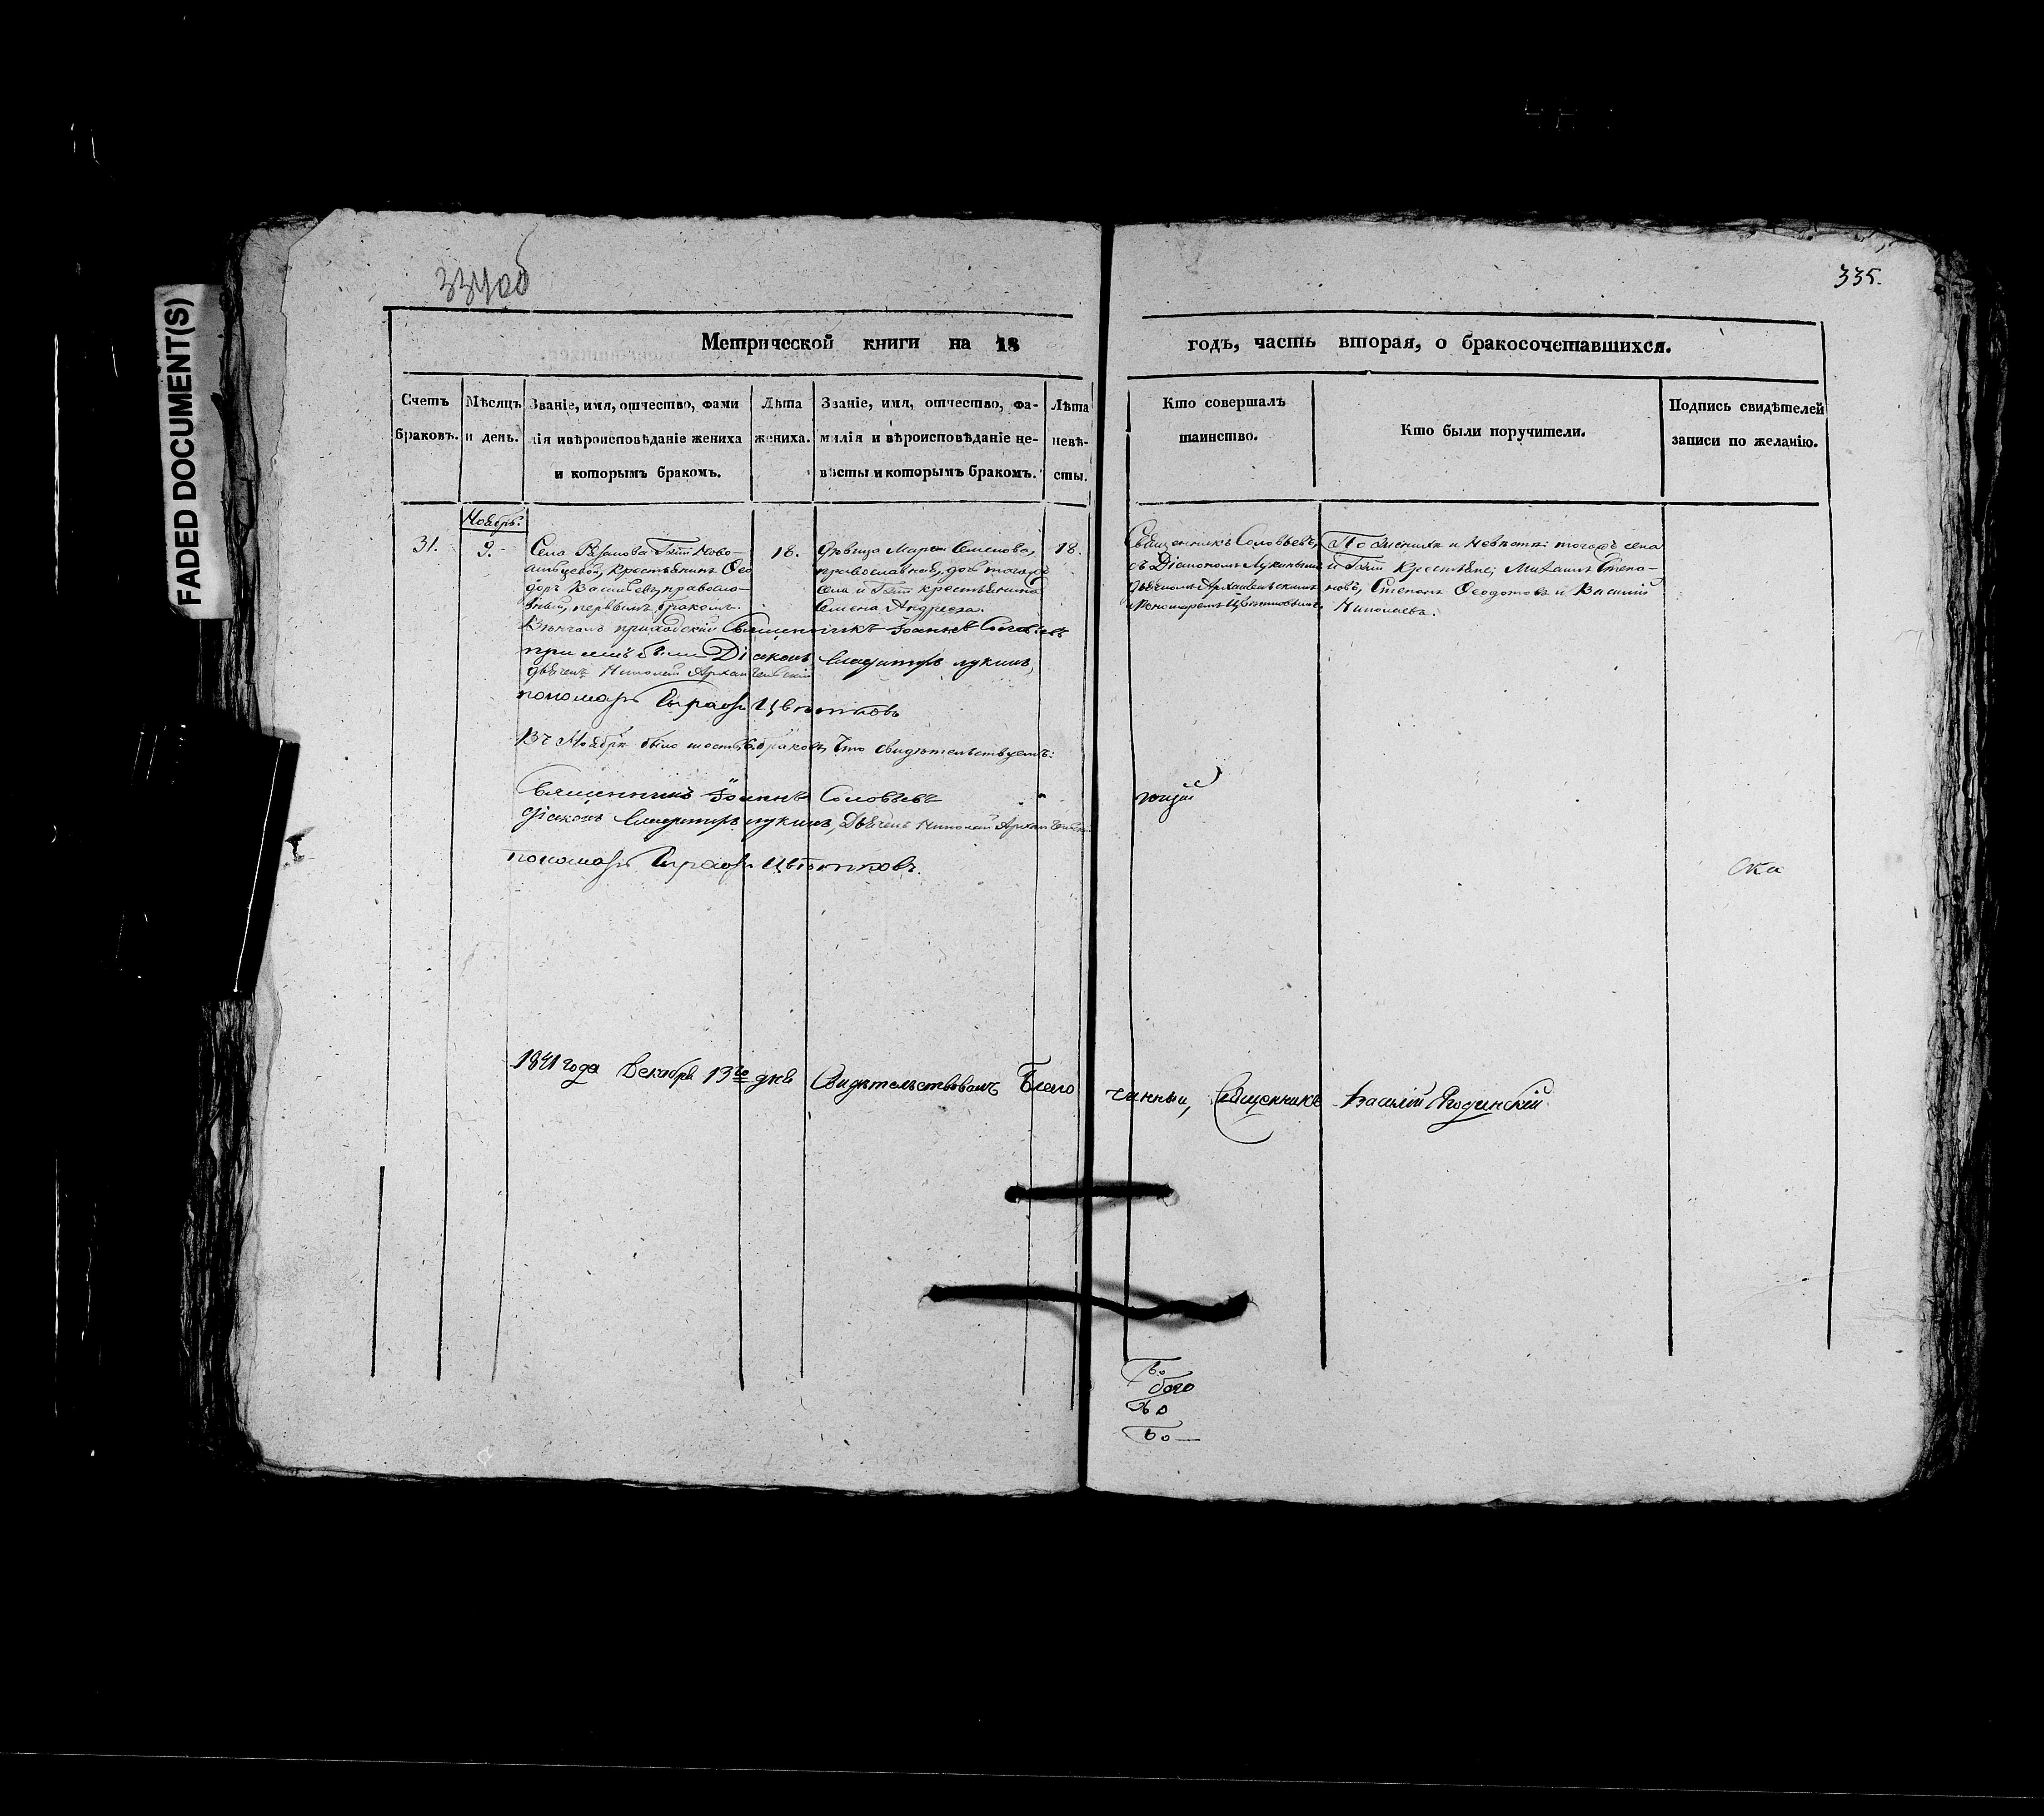 FADED DOCUMENT(S)
334об
335.
Метрической книги на 18
годъ, часть вторая, о бракосочетавшихся.
Счетъ
браковъ.
Мѣсяцъ
и день.
Званіе, имя, отчество, фами
лія и вѣроисповѣданіе жениха
и которымъ бракомъ.
Лѣта
жениха.
Званіе, имя, отчество, фа-
милія и вѣроисповѣданіе не-
вѣсты и которымъ бракомъ.
Лѣта
невѣ-
сты.
Кто совершалъ
таинство.
Кто были поручители.
Подпись свидѣтелей
записи по желанію.
Ноябрь.
31.
9.
Села Гжи Ново-
крестьянинъ Ѳео
доръ Васильевъ, правосла-
вный, первымъ бракомъ.
18.
Дѣвица Семенова,
православная, дочь тогожъ
села и Гжи крестьянина
Семена Андреева.
18.
Священникъ Соловьевъ,
съ Діакономъ Лукинымъ
дьячкомъ Архангельскимъ
и Пономаремъ Цвѣтковымъ.
По Женихѣ и Невѣстѣ: тогожъ села
и Гжи Крестьяне; Михаилъ Степа-
новъ, Степанъ Ѳеодотовъ и Василій
Николаевъ.
Вѣнчалъ приходскій Священникъ Іоаннъ Соловьевъ
при немъ были Діаконъ Владимиръ Лукинъ,
дьячекъ Николай Архангельскій
пономарь Цвѣтковъ
Въ Ноябрѣ было шесть 6. браковъ, Что свидѣтельствуемъ:
Священникъ Іоаннъ Соловьевъ
діаконъ Владимиръ Лукинъ, Дьячекъ Николай Архангельскій
пономарь Цвѣтковъ.
ска
1841 года Декабря 13го дня Свидѣтельствовалъ Благо
чинный, Священникъ Василій Ягодинскій